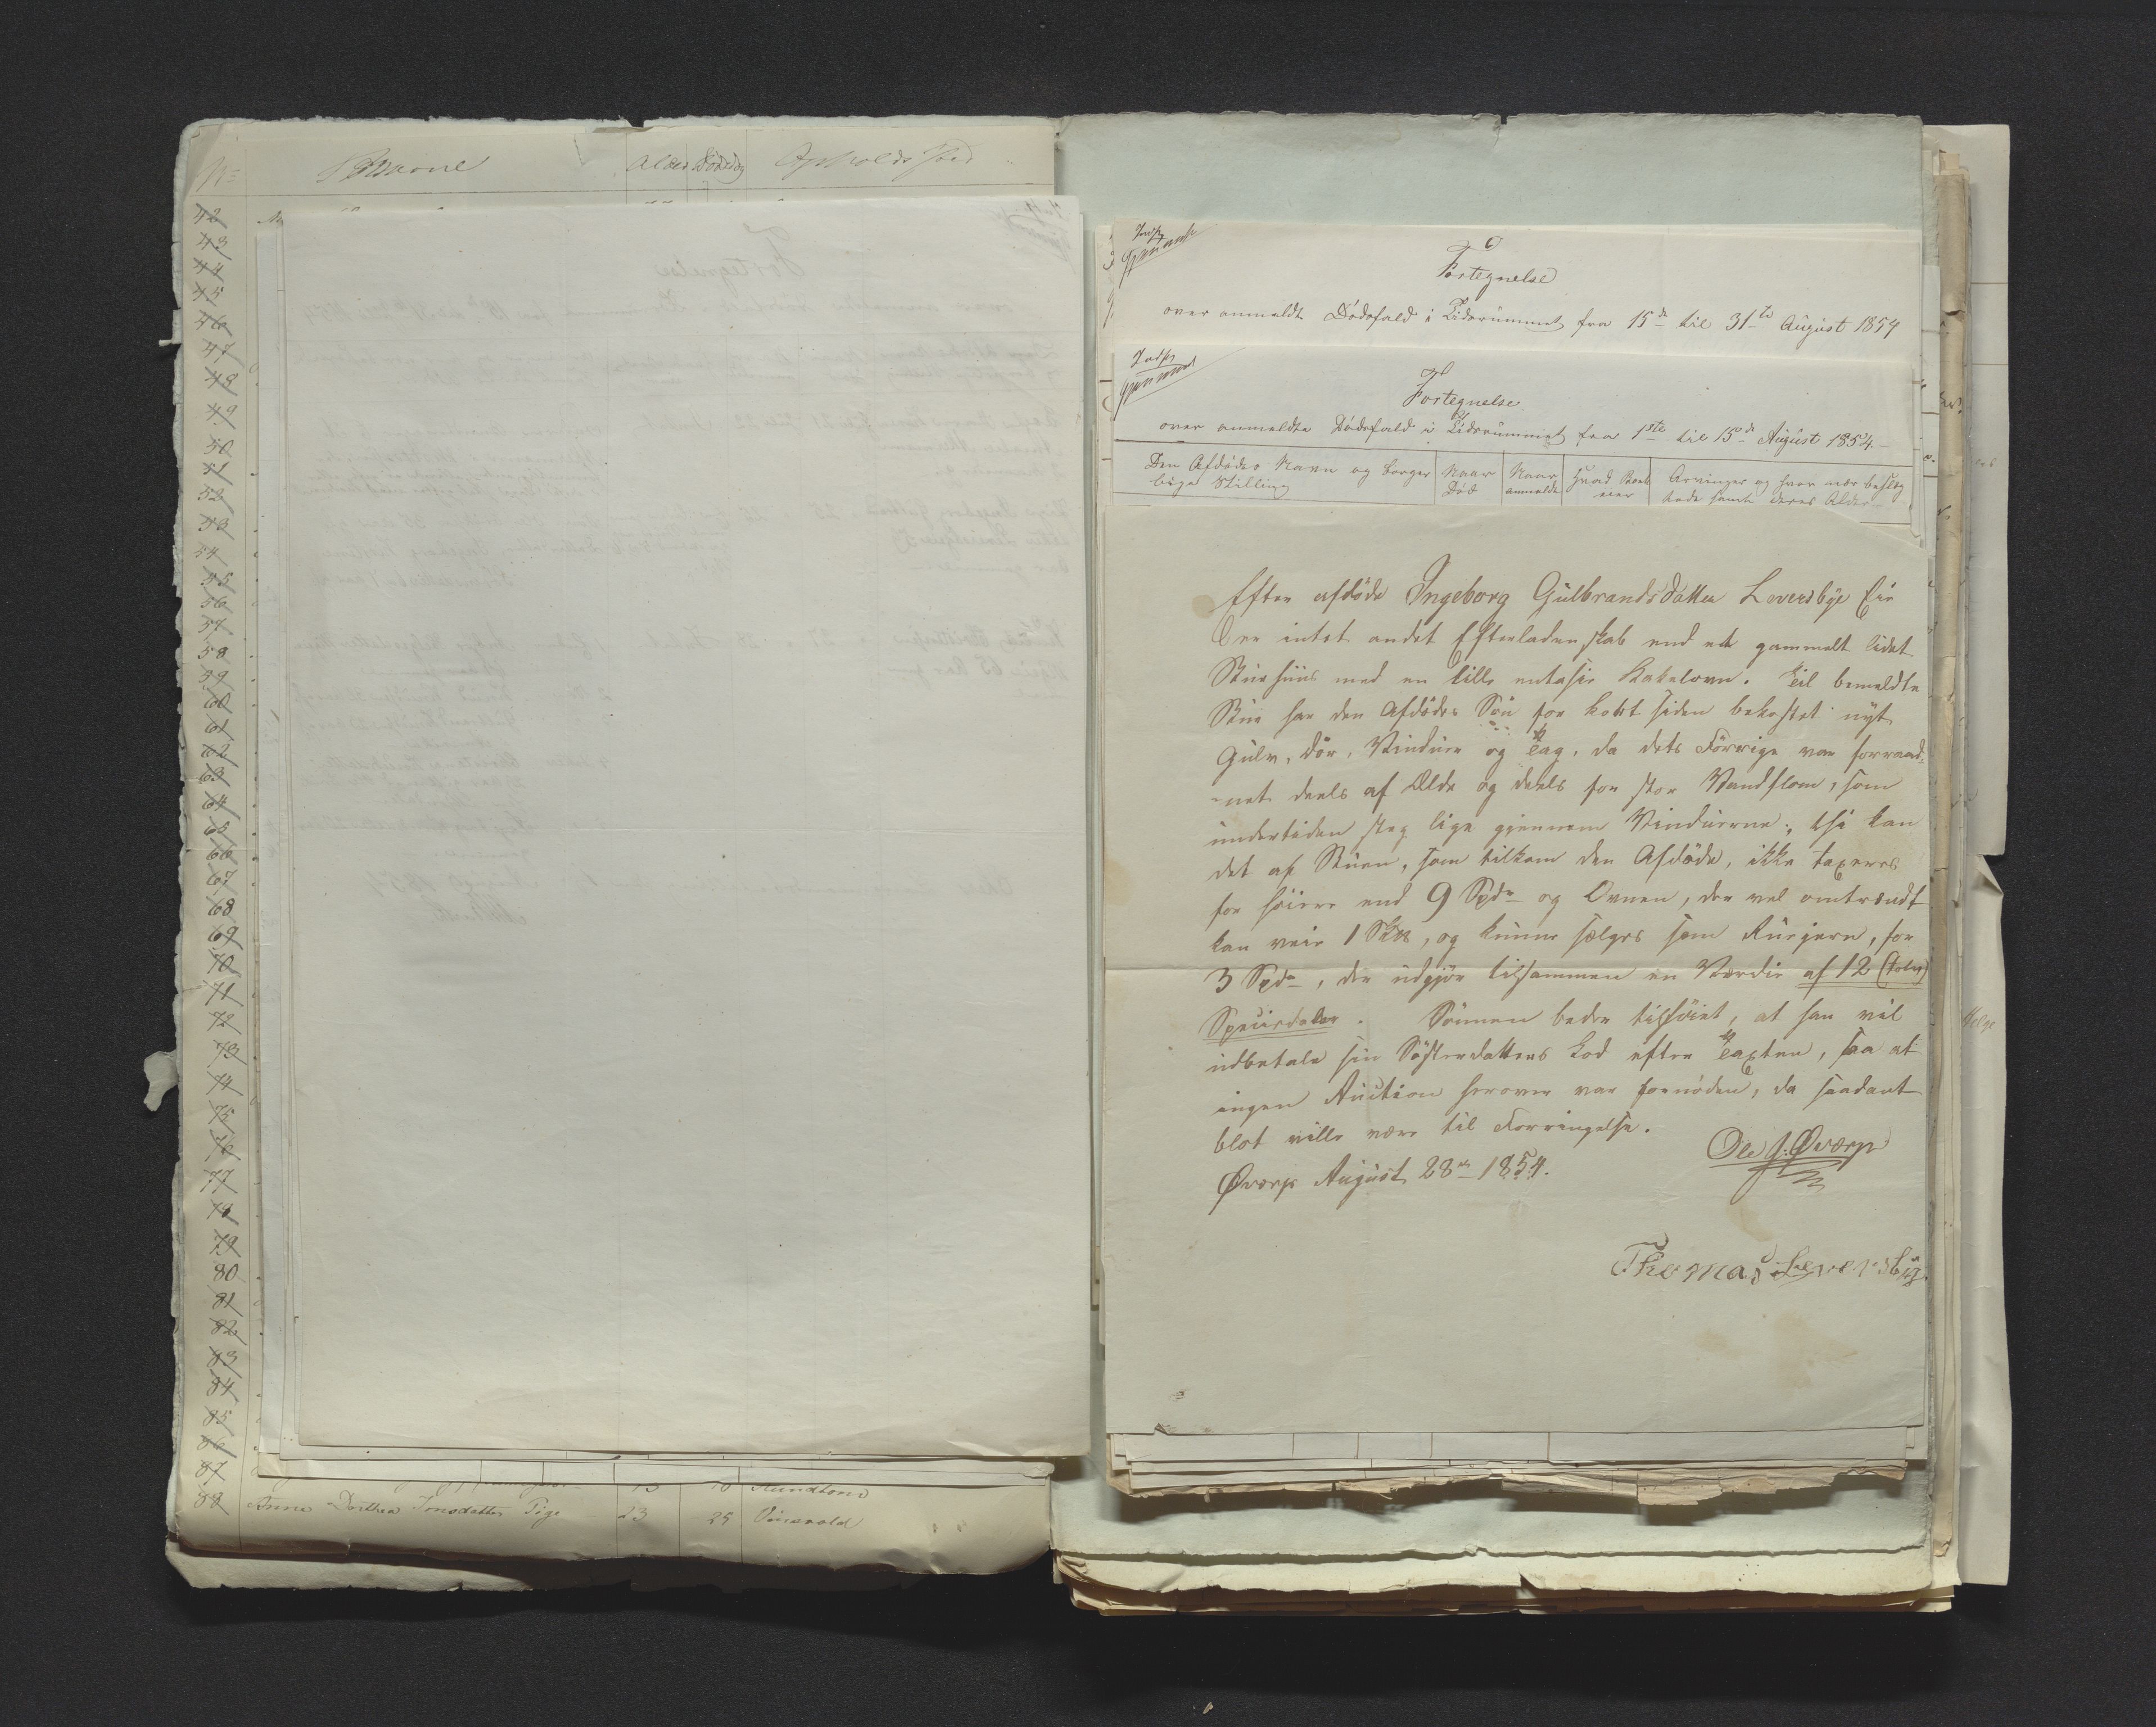 No
Navne
Alder
Dødsdag
Opholdssted
42
43
44
45
46
47
48
49
50
51
52
53
54
55
56
57
58
59
60
61
62
63
64
65
66
67
68
69
70
71
72
73
74
75
76
77
78
79
80
81
82
83
84
85
86
87
88 Anne Dorthea Jonsdatter Pige 23 25
Fortegnelse
over anmeldte Dødsfald i Tidsrummet fra 15de til 31te August 1854
Fortegnelse
over anmeldte Dødsfald i Tidsrummet fra 1ste til 15de August 1854.
Den Afdødes Navn og borger
lige Stilling
Naar
Død
Naar
anmeldt
Hvad Boet
eier
Arvinger og hvor nær beslæg
tede samt deres Alder
Efter afdøde Ingeborg Gulbrandsdatter Leversbye Eie
er intet andet Efterladenskab end et gammelt lidet
Stuehuus med en lille Kakelovn. Til bemeldte
Stue har den Afdødes Søn for kort siden bekostet nyt
Gulv, Dør, Vinduer og Tag, da dets Forrige var forraad-
-net deels af Ælde og deels for stor Vandflom, som
undertiden steg lige gjennem Vinduerne; thi kan
det af Stuen, som tilkom den Afdøde, ikke taxeres
for høiere end 9 Spd og Ovnen, der vel omtrendt
kan veie 1 Sk℔, og kunne sælges som Rujern, for
3 Spd, der udgjør tilsammen en Værdie af 12 (tolv)
Speciedaler. Sønnen beder tilføiet, at han vil
udbetale sin Søsterdatters Lod efter Taxten, saa at
ingen Auction herover var fornøden, da saadant
blot ville være til Forringelse.
Qværp August 28de 1854.
Ole J. Qværp
Thomas Leversbÿ